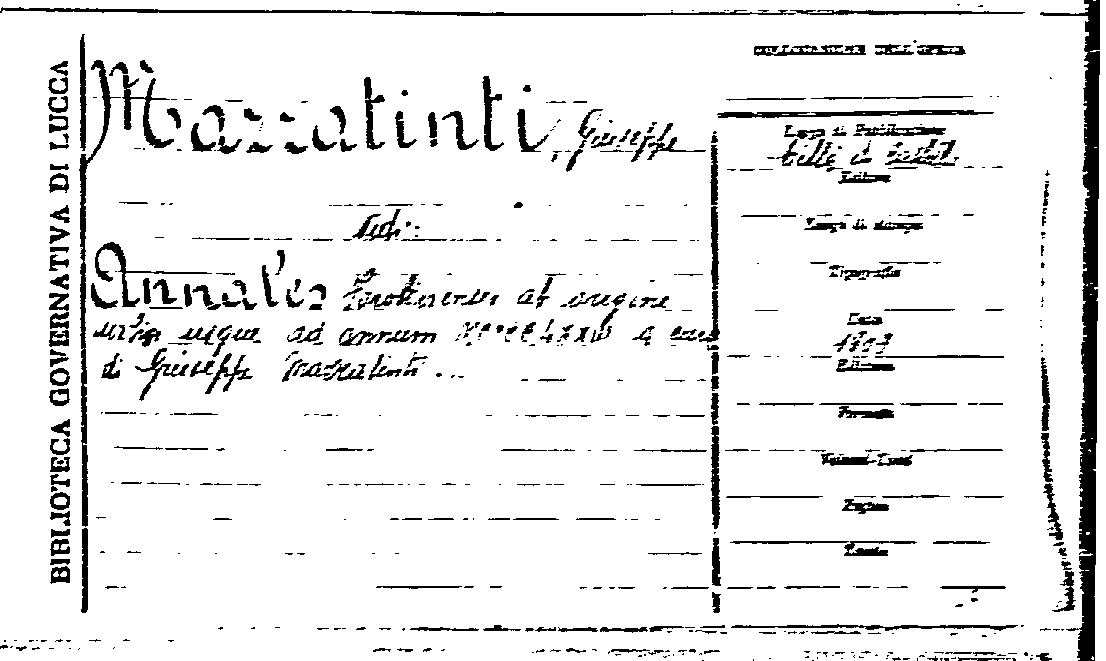 BIBLIOTECA GOVERNATIVA DI LUCCA
Mazzatinti, Giuseppe
Vedi:
Annales Forolivienses ab origine
urbis usque ad annum a cura
di Giuseppe Mazzatinti ...
Luogo di Pubblicazione
Città di Castello
Editore
Luogo di stampa
Tipografia
Data
1903
Edizione
Formato
Volumi-Tomi
Pagine
Tavole